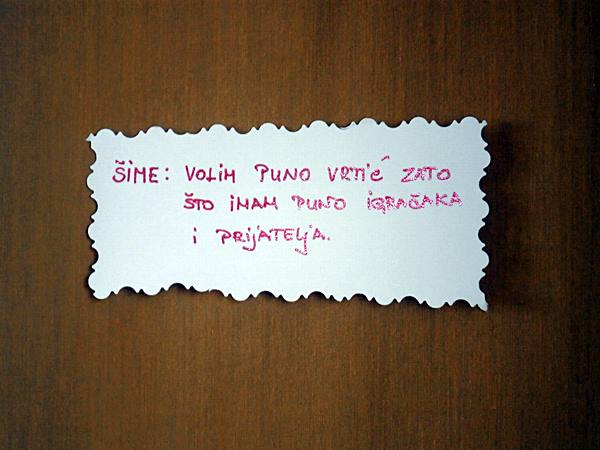 ŠIME: VOLIM PUNO VRTIĆ ZATO
ŠTO IMAM PUNO IGRAČAKA
I PRIJATELJA.